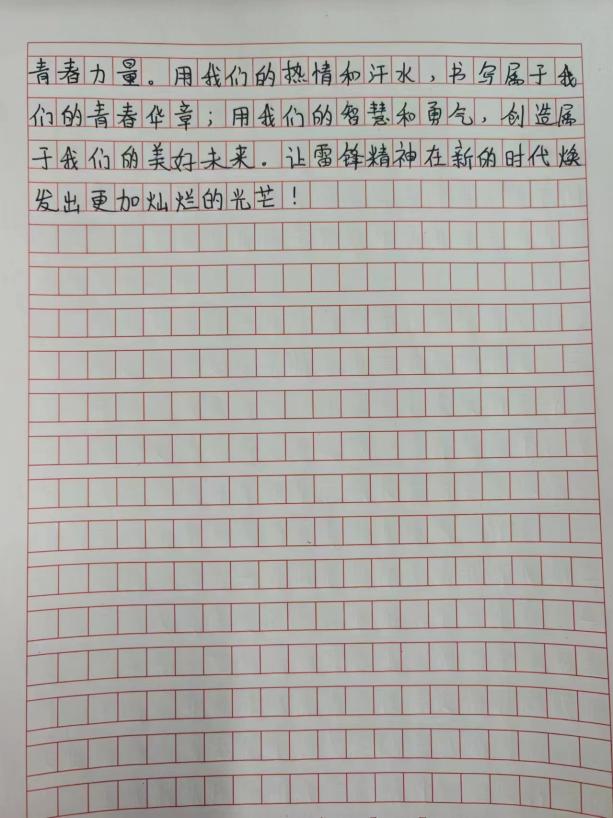 青春力量。用我们的热情和汗水，书写属于我
们的青春华章；用我们的智慧和勇气，创造属
于我们的美好未来．让雷锋精神在新的时代焕
发出更加灿烂的光芒！